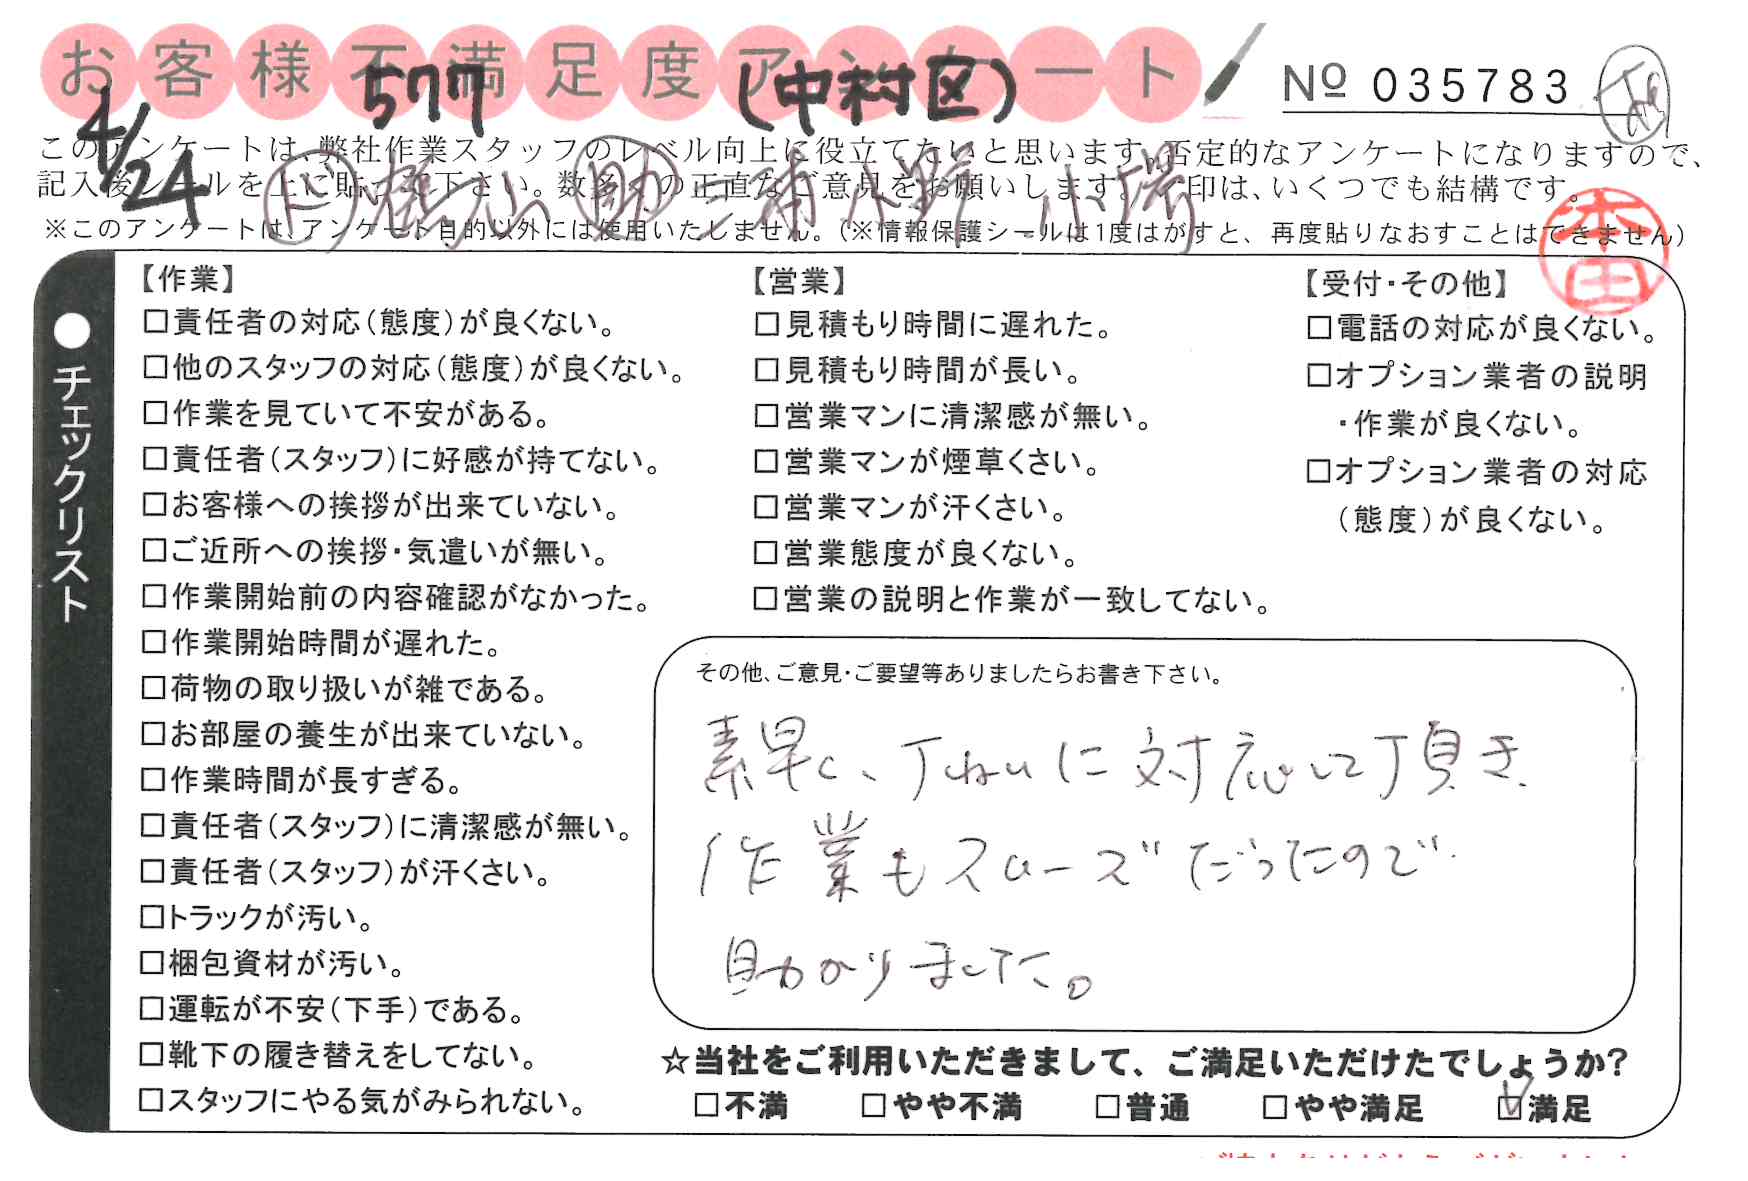 お客様不満足度アンケート
№ 035783
4/24 577 (中村区)
このアンケートは、弊社作業スタッフのレベル向上に役立てたいと思います。否定的なアンケートになりますので、
記入後シールを上に貼って下さい。数多くの正直なご意見をお願いします。✓印は、いくつでも結構です。
ド 鶴山 助 三浦 小野 小場
※このアンケートは、アンケート目的以外には使用いたしません。（※情報保護シールは1度はがすと、再度貼りなおすことはできません）
●チェックリスト
【作業】
□責任者の対応（態度）が良くない。
□他のスタッフの対応（態度）が良くない。
□作業を見ていて不安がある。
□責任者（スタッフ）に好感が持てない。
□お客様への挨拶が出来ていない。
□ご近所への挨拶・気遣いが無い。
□作業開始前の内容確認がなかった。
□作業開始時間が遅れた。
□荷物の取り扱いが雑である。
□お部屋の養生が出来ていない。
□作業時間が長すぎる。
□責任者（スタッフ）に清潔感が無い。
□責任者（スタッフ）が汗くさい。
□トラックが汚い。
□梱包資材が汚い。
□運転が不安（下手）である。
□靴下の履き替えをしてない。
□スタッフにやる気がみられない。
【営業】
□見積もり時間に遅れた。
□見積もり時間が長い。
□営業マンに清潔感が無い。
□営業マンが煙草くさい。
□営業マンが汗くさい。
□営業態度が良くない。
□営業の説明と作業が一致してない。
【受付・その他】
□電話の対応が良くない。
□オプション業者の説明
・作業が良くない。
□オプション業者の対応
（態度）が良くない。
その他、ご意見・ご要望等ありましたらお書き下さい。
素早く、丁ねいに対応して頂き、
作業もスムーズだったので
助かりました。
☆当社をご利用いただきまして、ご満足いただけたでしょうか?
□不満 □やや不満 □普通 □やや満足 ☑満足